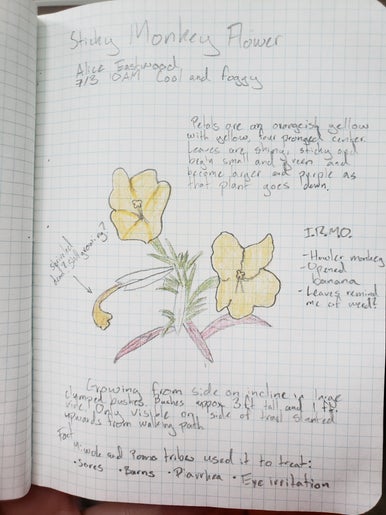 Sticky Monkey Flower
Alice Eastwood
7/3 10AM Cool and foggy
Petals are an orangeish yellow
with yellow, four pronged center.
Leaves are shiny, sticky and
begin small and green and
become larger and purple as
that plant goes down.
I.R.M.O.
- Howler monkey
- Opened
banana
- Leaves remind
me of weed?
shriveled
dead? Still growing?
Growing from side on incline in large
clumped bushes. Bushes approx 3 ft tall and 1 ft
wide. Only visible on side of trail slanted
upwards from walking path.
Fact
Miwok and Pomo tribes used it to treat:
• Sores • Burns • Diarrhea • Eye irritation